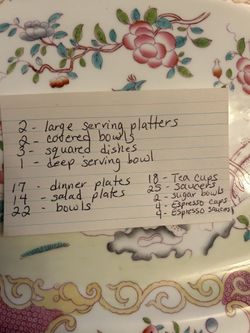 2 - large serving platters
2 - covered bowls
3 - squared dishes
1 - deep serving bowl
17 - dinner plates
14 - salad plates
22 - bowls
18 - Tea cups
25 - saucers
2 - sugar bowls
4 - Espresso cups
4 - Espresso saucers